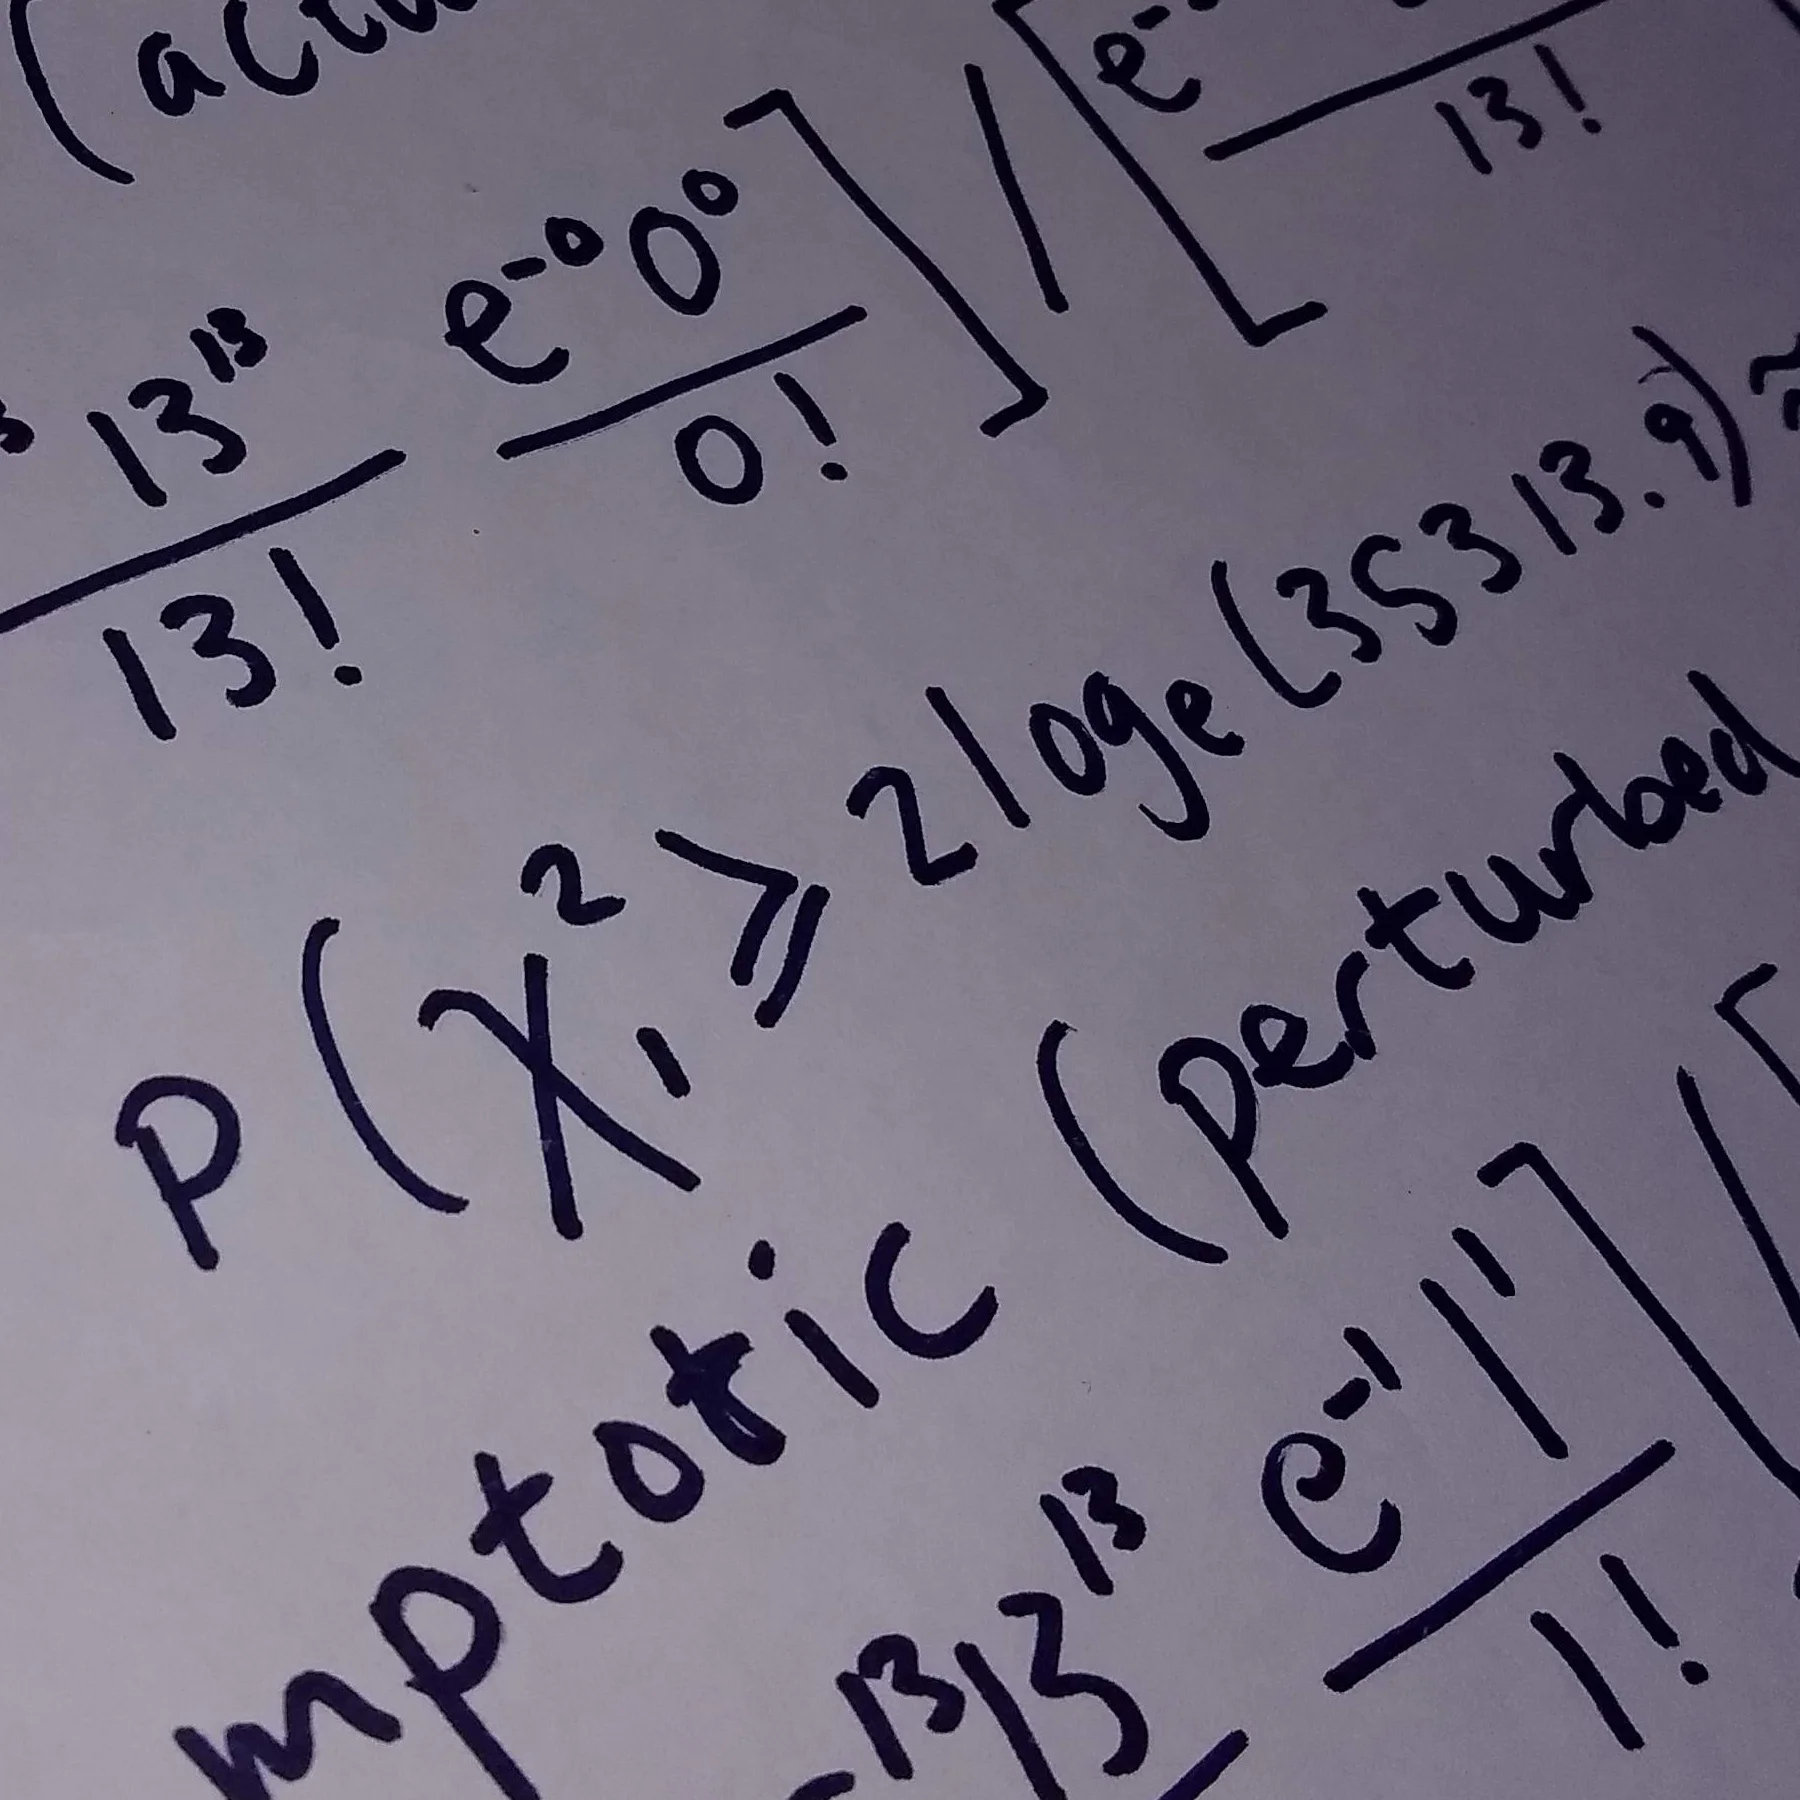 (actu
13^13 / 13! e^-0 0^0 / 0! ] / [ e^- / 13!
P(χ₁² ≥ 2 logₑ(35313.9) ≈
mptotic (perturbed
^-13 13^13 e^-1 1^1 / 1! ] / [